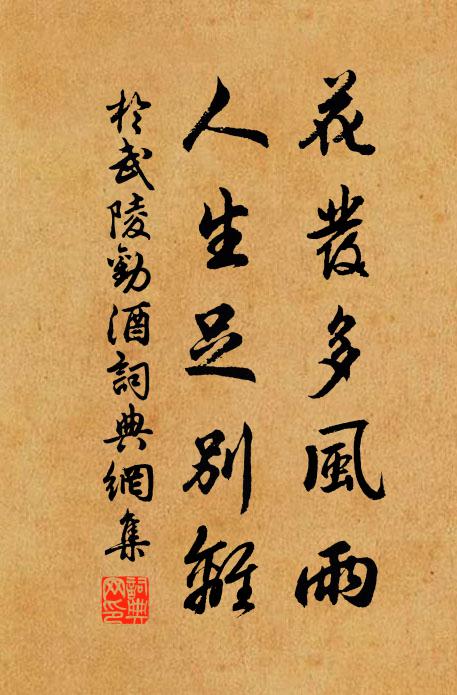 花發多風雨
人生足別離
於武陵勸酒詞典網集
詞典
网印